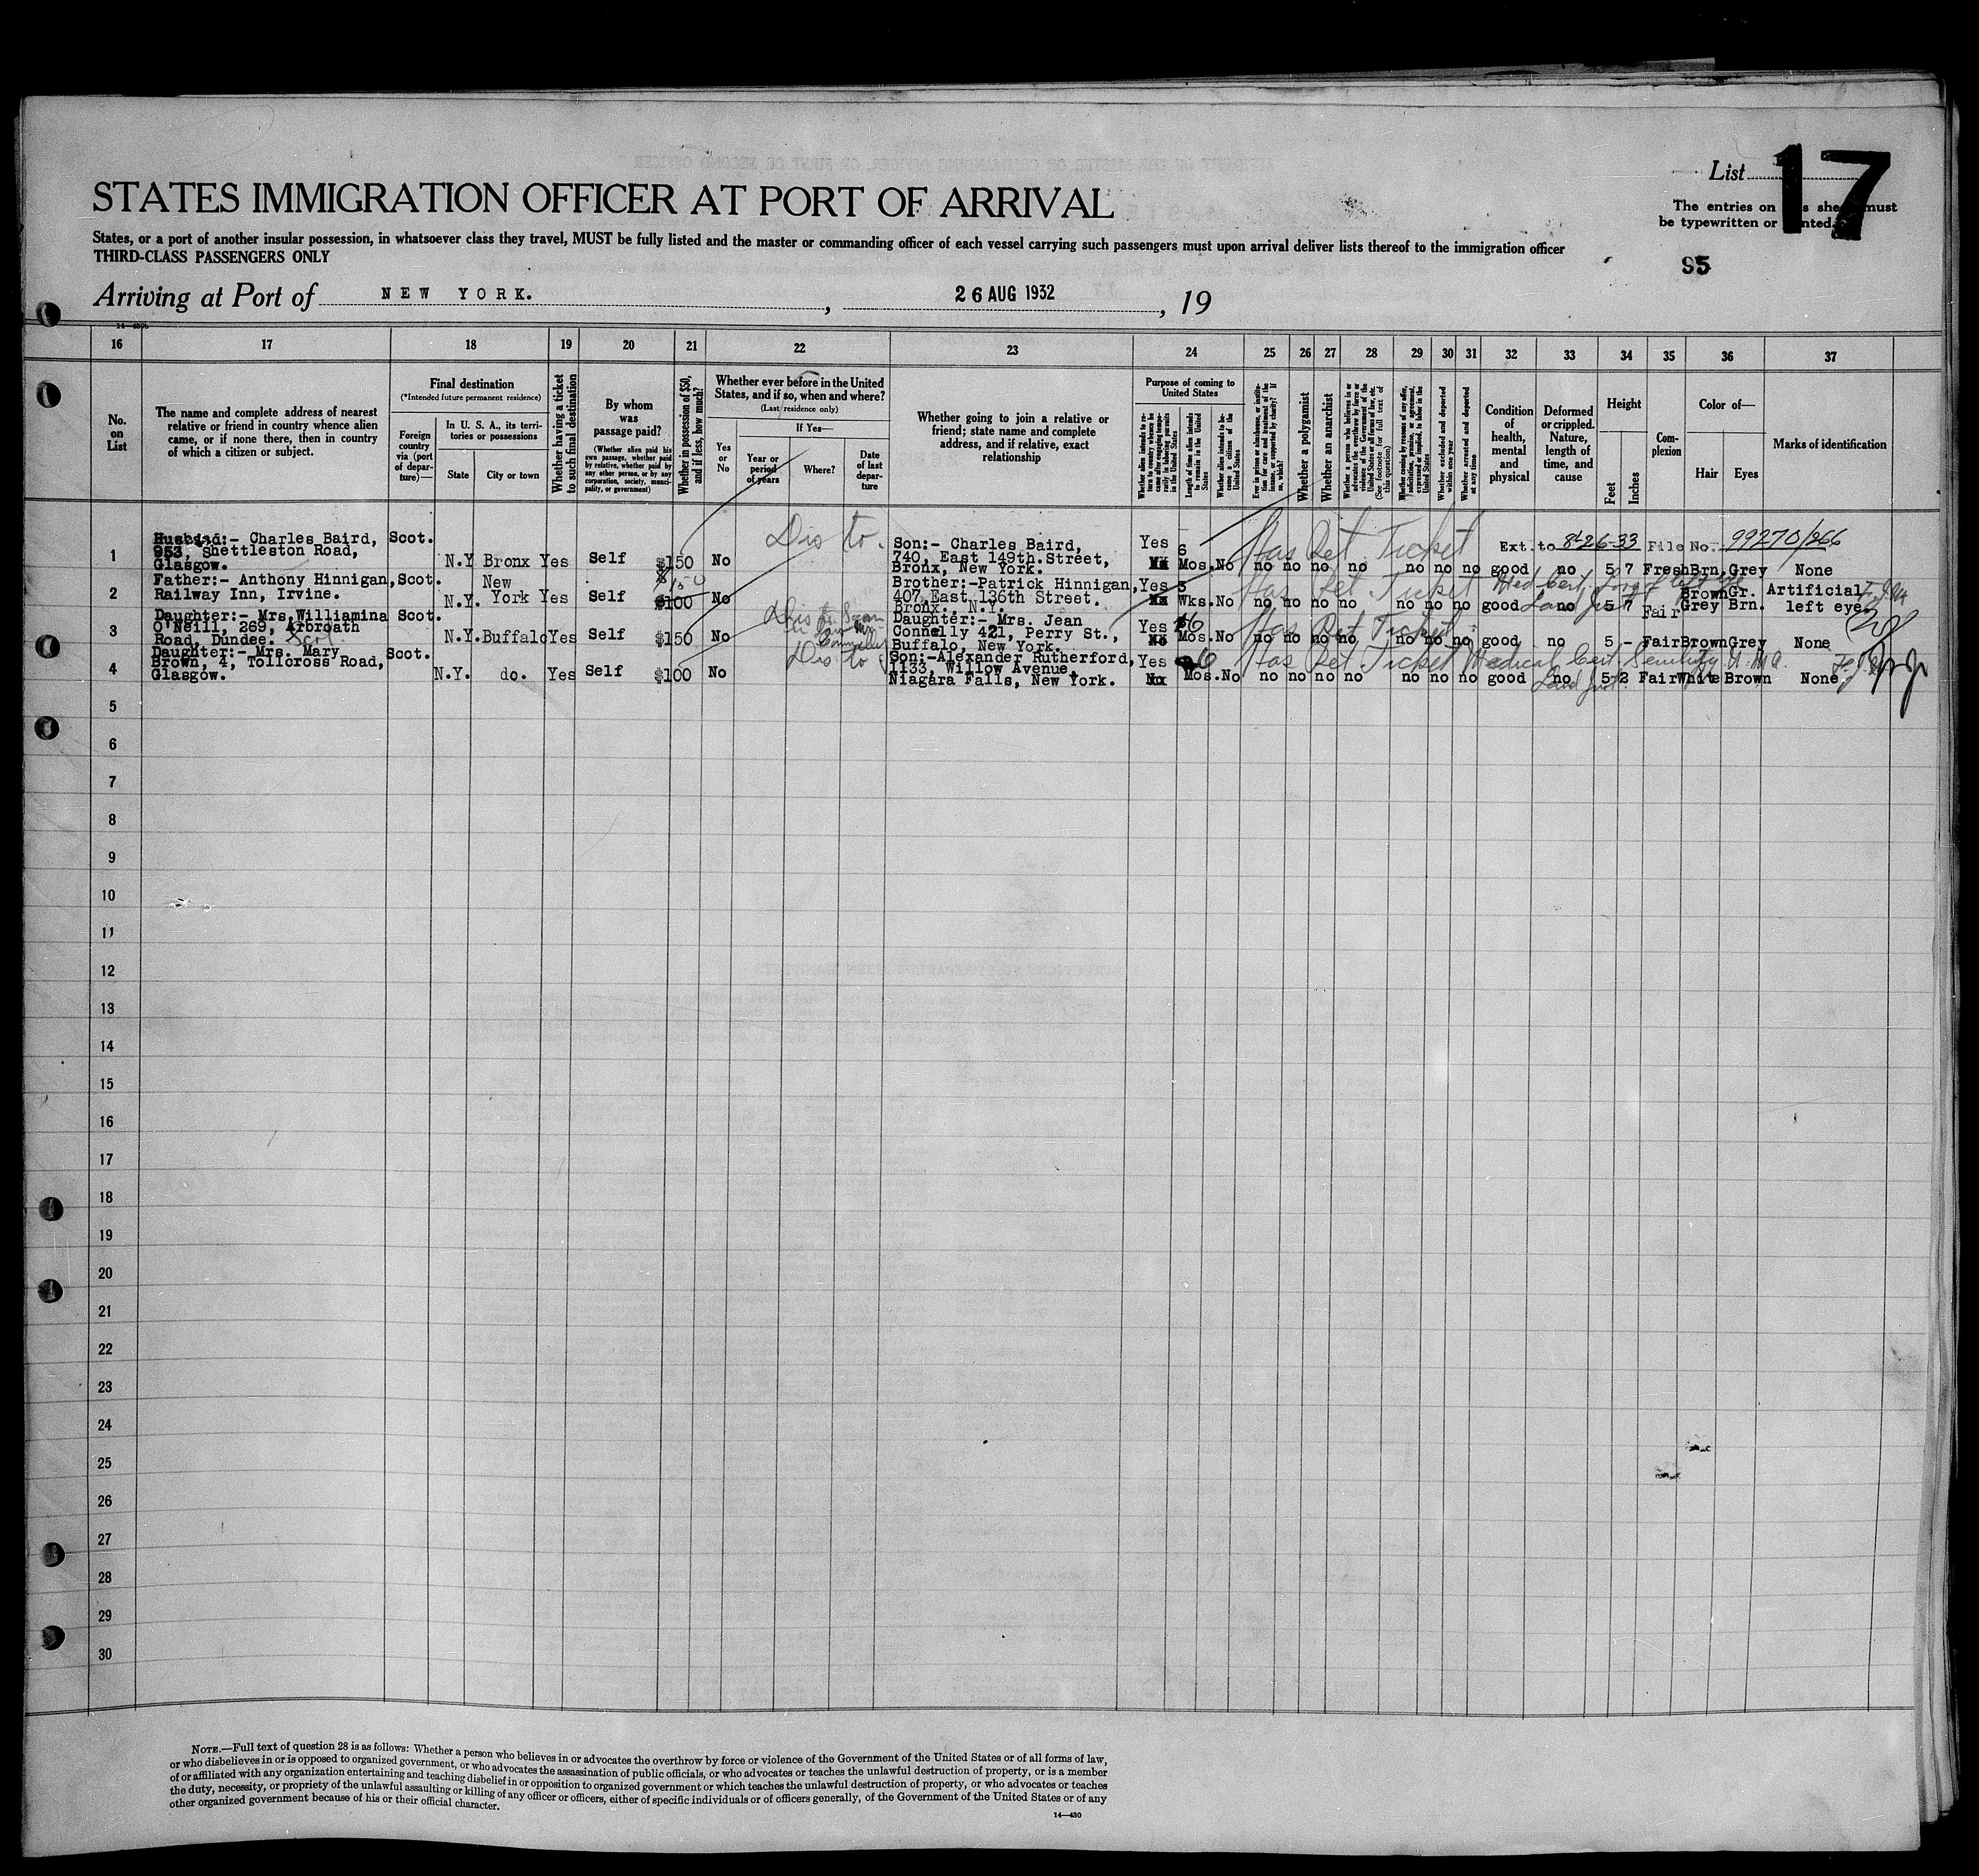 List 17
STATES IMMIGRATION OFFICER AT PORT OF ARRIVAL
The entries on
be typewritten or
States, or a port of another insular possession, in whatsoever class they travel, MUST be fully listed and the master or commanding officer of each vessel carrying such passengers must upon arrival deliver lists thereof to the immigration officer
THIRD-CLASS PASSENGERS ONLY
95
Arriving at Port of NEW YORK. , 26 AUG 1932 , 19
16 17 18 19 20 21 22 23 24 25 26 27 28 29 30 31 32 33 34 35 36 37
No. on List
The name and complete address of nearest
relative or friend in country whence alien
came, or if none there, then in country
of which a citizen or subject.
Final destination
(*Intended future permanent residence)
Foreign country via (port of departure)—
In U. S. A., its territories or possessions
State
City or town
Whether having a ticket to such final destination
By whom was passage paid?
(Whether alien paid his own passage, whether paid by relative, whether paid by any other person, or by any corporation, society, municipality, or government)
Whether in possession of $50, and if less, how much?
Whether ever before in the United States, and if so, when and where?
(Last residence only)
Yes or No
If Yes—
Year or period of years
Where?
Date of last departure
Whether going to join a relative or
friend; state name and complete
address, and if relative, exact
relationship
Purpose of coming to United States
Length of time alien intends to remain in the United States
Whether alien intends to become a citizen of the United States
Whether a polygamist
Whether an anarchist
(See footnote for full text of this question)
Whether excluded and deported within one year
Whether arrested and deported at any time
Condition of health, mental and physical
Deformed or crippled. Nature, length of time, and cause
Height
Feet
Inches
Complexion
Color of—
Hair
Eyes
Marks of identification
Dis to.
Has Ret. Ticket
Ext. to 8-26-33 File No. 99270/266
1 Husband:- Charles Baird,
953, Shettleston Road,
Glasgow.
Scot. N.Y Bronx Yes Self $150 No
Son:- Charles Baird,
740, East 149th.Street,
Bronx, New York.
Yes 6 Mos. No no no no no no no no good no 5 7 Fresh Brn. Grey None
2 Father:- Anthony Hinnigan,
Railway Inn, Irvine.
Scot. N.Y. New York Yes Self $100 150 No
Brother:-Patrick Hinnigan,
407, East, 136th Street.
Bronx., N.Y.
Yes 3 Wks. No no no no no no no no good no 5 7 Fair Brown Grey Gr. Brn. Artificial left eye.
Has Ret. Ticket
Med Cert.
3 Daughter:- Mrs. Williamina
O'Neill, 269, Arbroath
Road, Dundee. Scot
Scot. N.Y. Buffalo Yes Self $150 No
Daughter:- Mrs. Jean
Connelly 421, Perry St.,
Buffalo, New York.
Yes 6 Mos. No no no no no no no no good no 5 - Fair Brown Grey None
Has Ret. Ticket
4 Daughter:- Mrs. Mary
Brown, 4, Tollcross Road,
Glasgow.
Scot. N.Y. do. Yes Self $100 No
Dis to
Son:-Alexander Rutherford,
1133, Willow Avenue,
Niagara Falls, New York.
Yes 6 Mos. No no no no no no no no good no 5 2 Fair White Brown None
Has Ret Ticket Medical Cert. Senility
5
6
7
8
9
10
11
12
13
14
15
16
17
18
19
20
21
22
23
24
25
26
27
28
29
30
NOTE.—Full text of question 28 is as follows: Whether a person who believes in or advocates the overthrow by force or violence of the Government of the United States or of all forms of law,
or who disbelieves in or is opposed to organized government, or who advocates the assassination of public officials, or who advocates or teaches the unlawful destruction of property, or is a member
of or affiliated with any organization entertaining and teaching disbelief in or opposition to organized government or which teaches the unlawful destruction of property, or who advocates or teaches
the duty, necessity, or propriety of the unlawful assaulting or killing of any officer or officers, either of specific individuals or of officers generally, of the Government of the United States or of any
other organized government because of his or their official character.
14—430